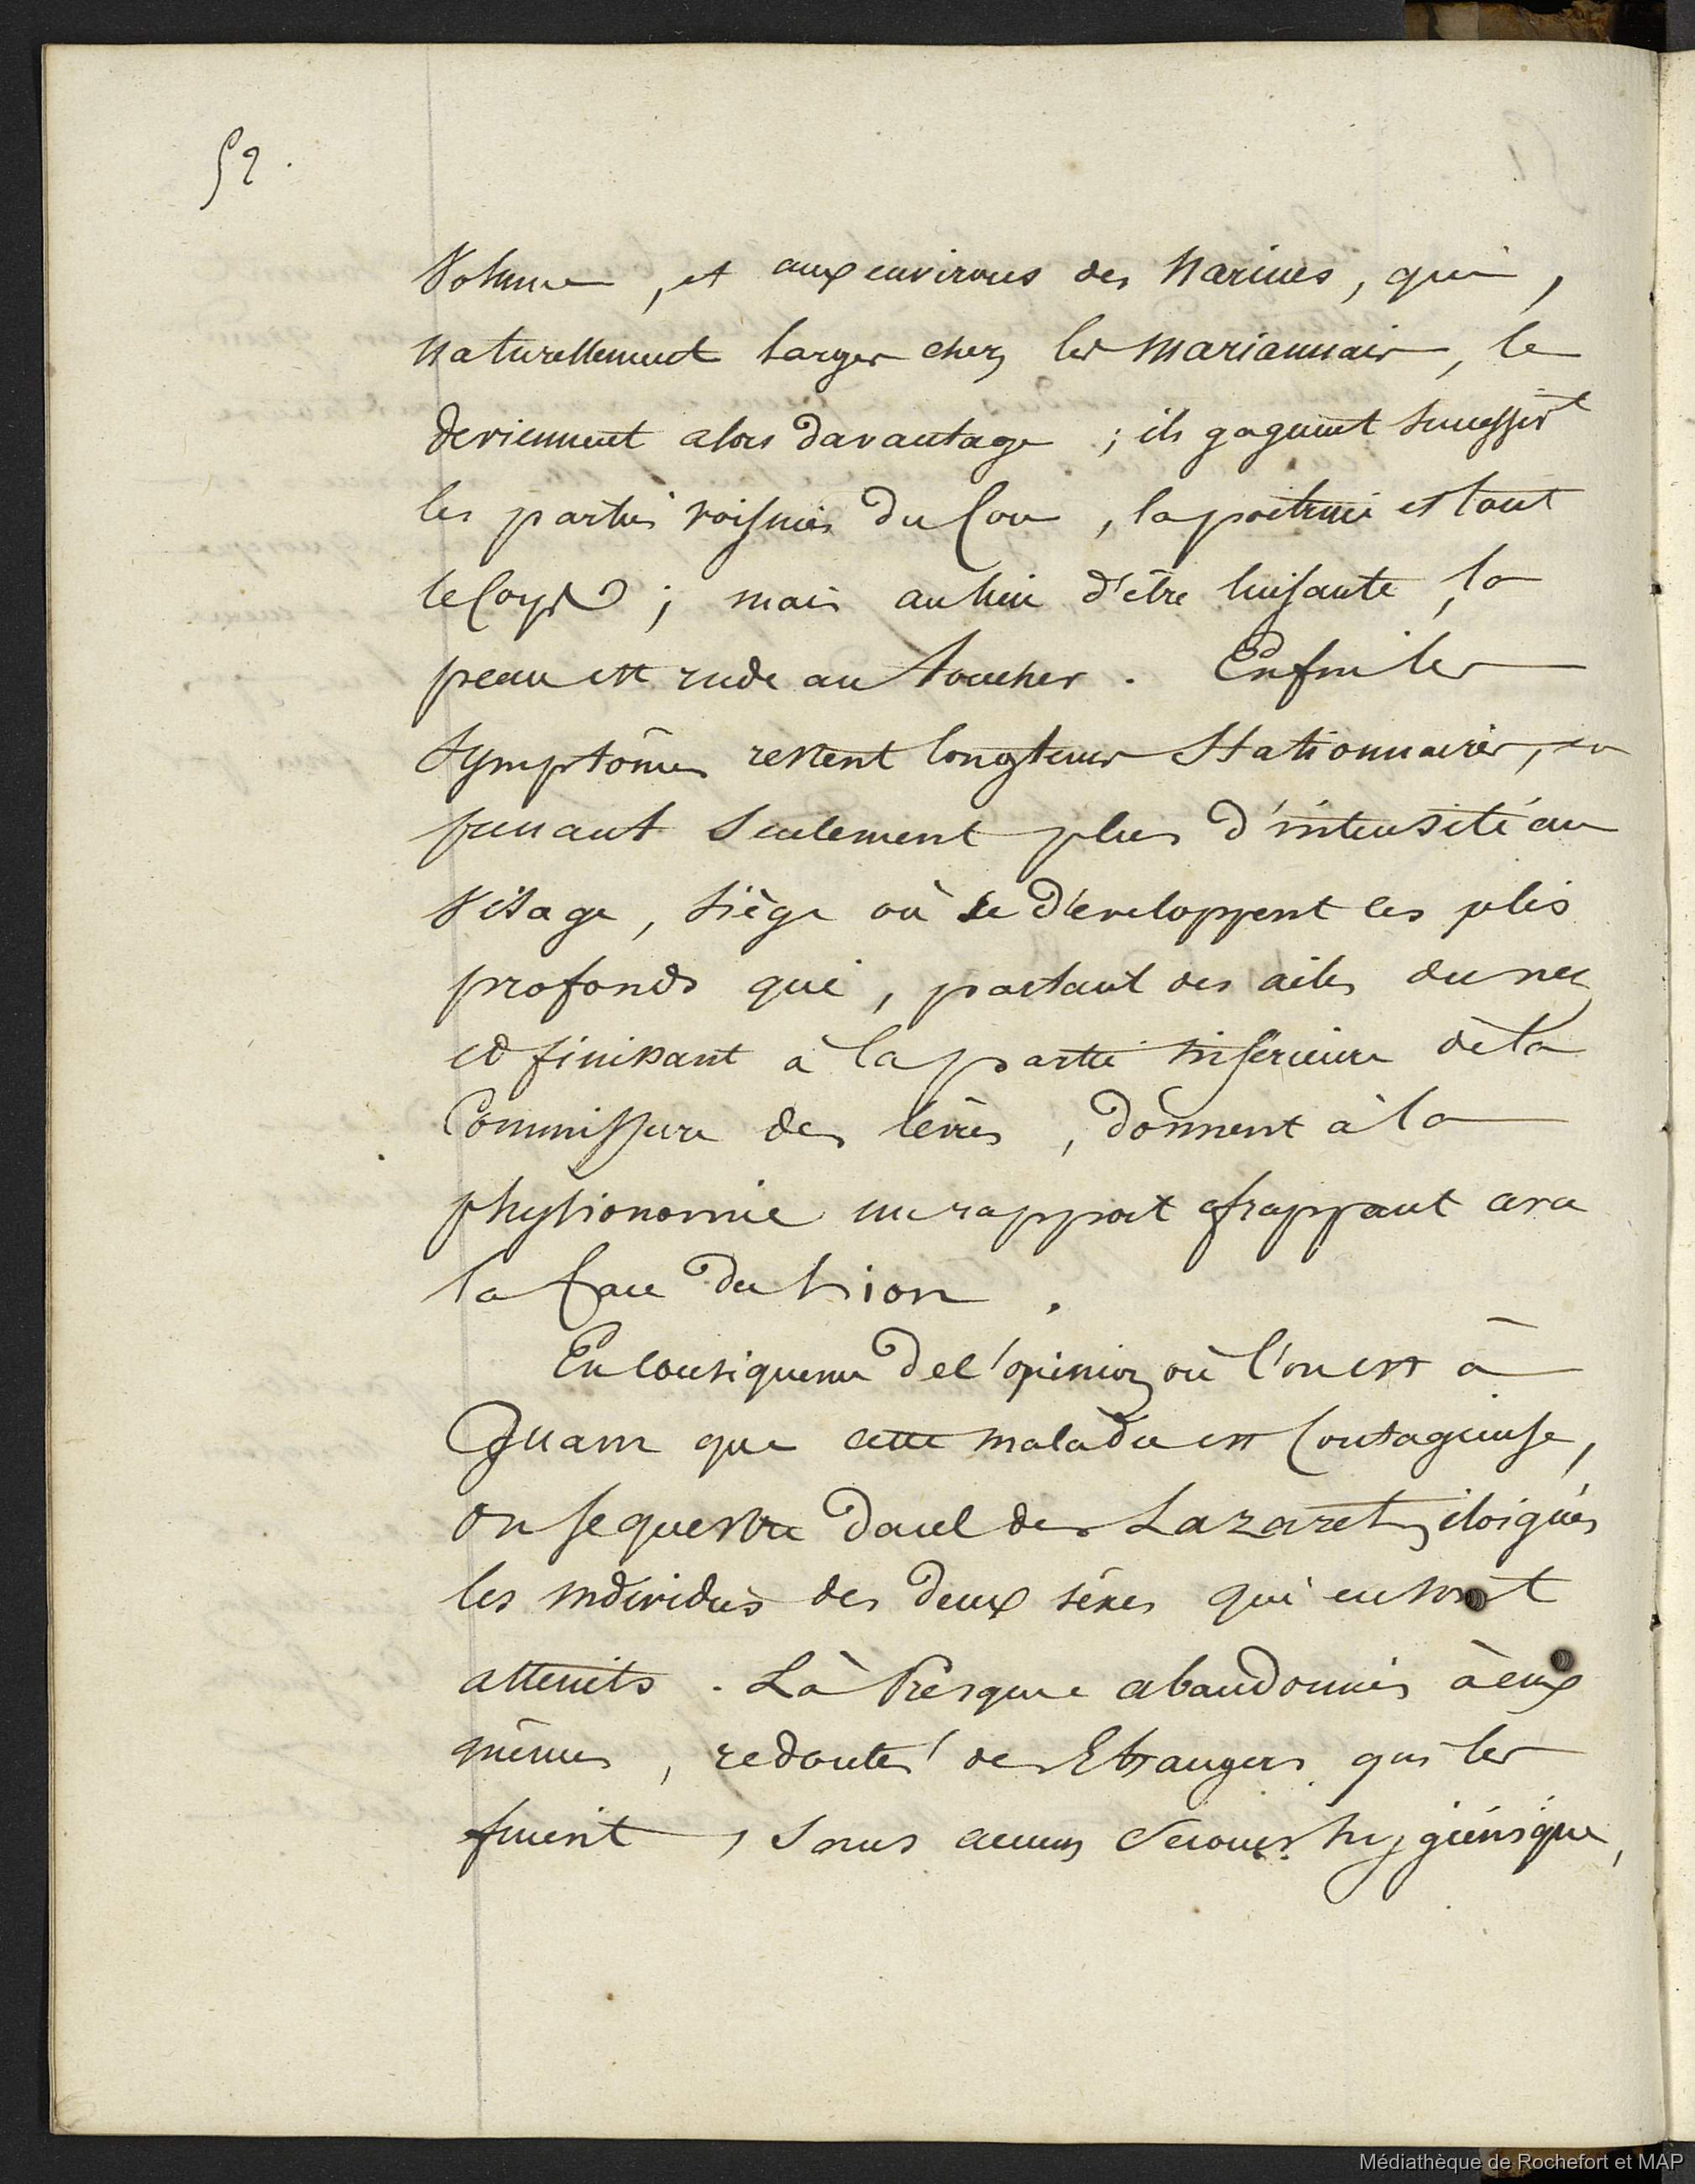 52.
Volume, et aux environs des Narines, qui,
Naturellement larges chez les Mariannais, le
deviennent alors davantage ; ils gagnent successivt
les parties voisines du Cou, la poitrine et tout
le Corps ; mais au lieu d'être luisante, la
peau est rude au toucher. Enfin les
Symptômes restent longtems Stationnaires, en
prenant Seulement plus d'intensité au
Visage, Siège où se développent les plis
profonds qui, partant des ailes du nez
et finissant à la partie inférieure de la
Commissure des lèvres, donnent à la
physionomie un rapport frappant avec
la face du Lion.
En Conséquence de l'opinion où l'on est à
Guam que cette maladie est Contagieuse,
on sequestre dans des Lazarets éloignés
les individus des deux séxes qui en sont
atteints. Là Presque abandonnés à eux
mêmes, redoutés des Etrangers qui les
fuient, Sans aucun Secours hygiénique,
Médiathèque de Rochefort et MAP